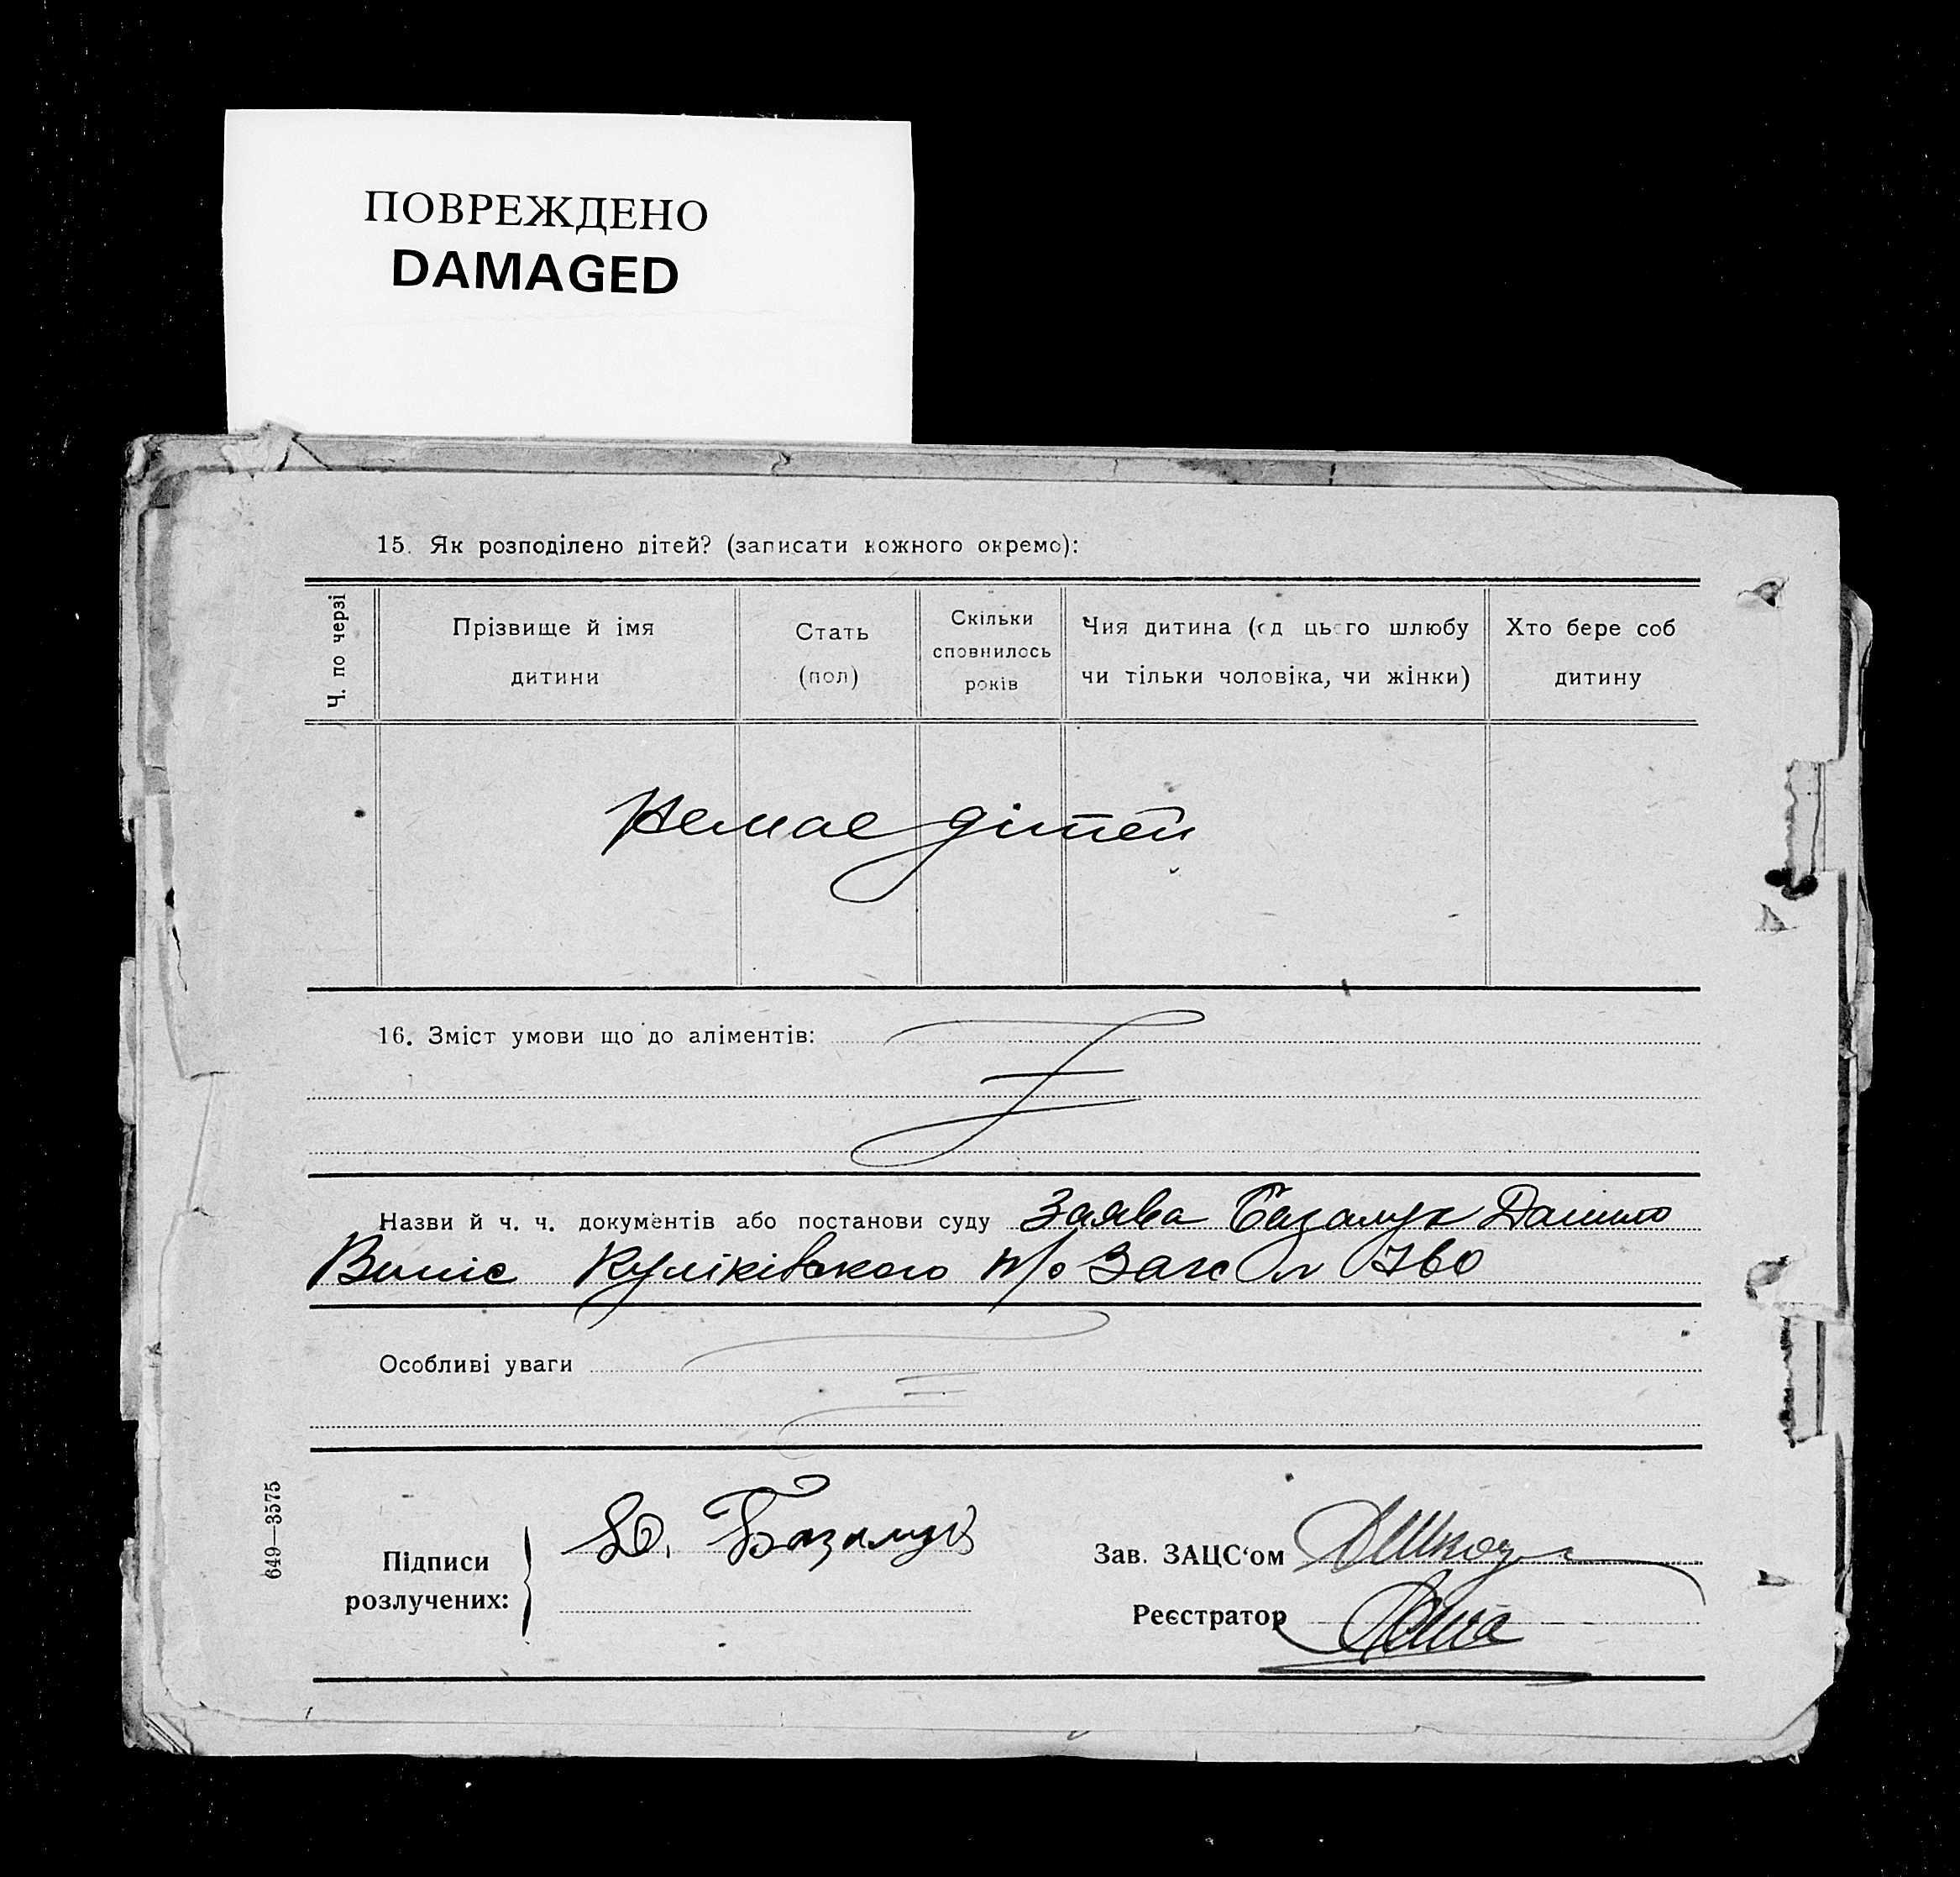 ПОВРЕЖДЕНО
DAMAGED
15. Як розподілено дітей? (записати кожного окремо):
Ч. по черзі
Прізвище й імя дитини
Стать (пол)
Скільки сповнилось років
Чия дитина (од цього шлюбу чи тільки чоловіка, чи жінки)
Хто бере соб дитину
Немає дітей
16. Зміст умови що до аліментів:
Назви й ч. ч. документів або постанови суду Заява Базалук Данило
Випис Куликівського Загс 760
Особливі уваги
649—3575
Підписи розлучених:
Д. Базалук
Зав. ЗАЦС‘ом
Реєстратор